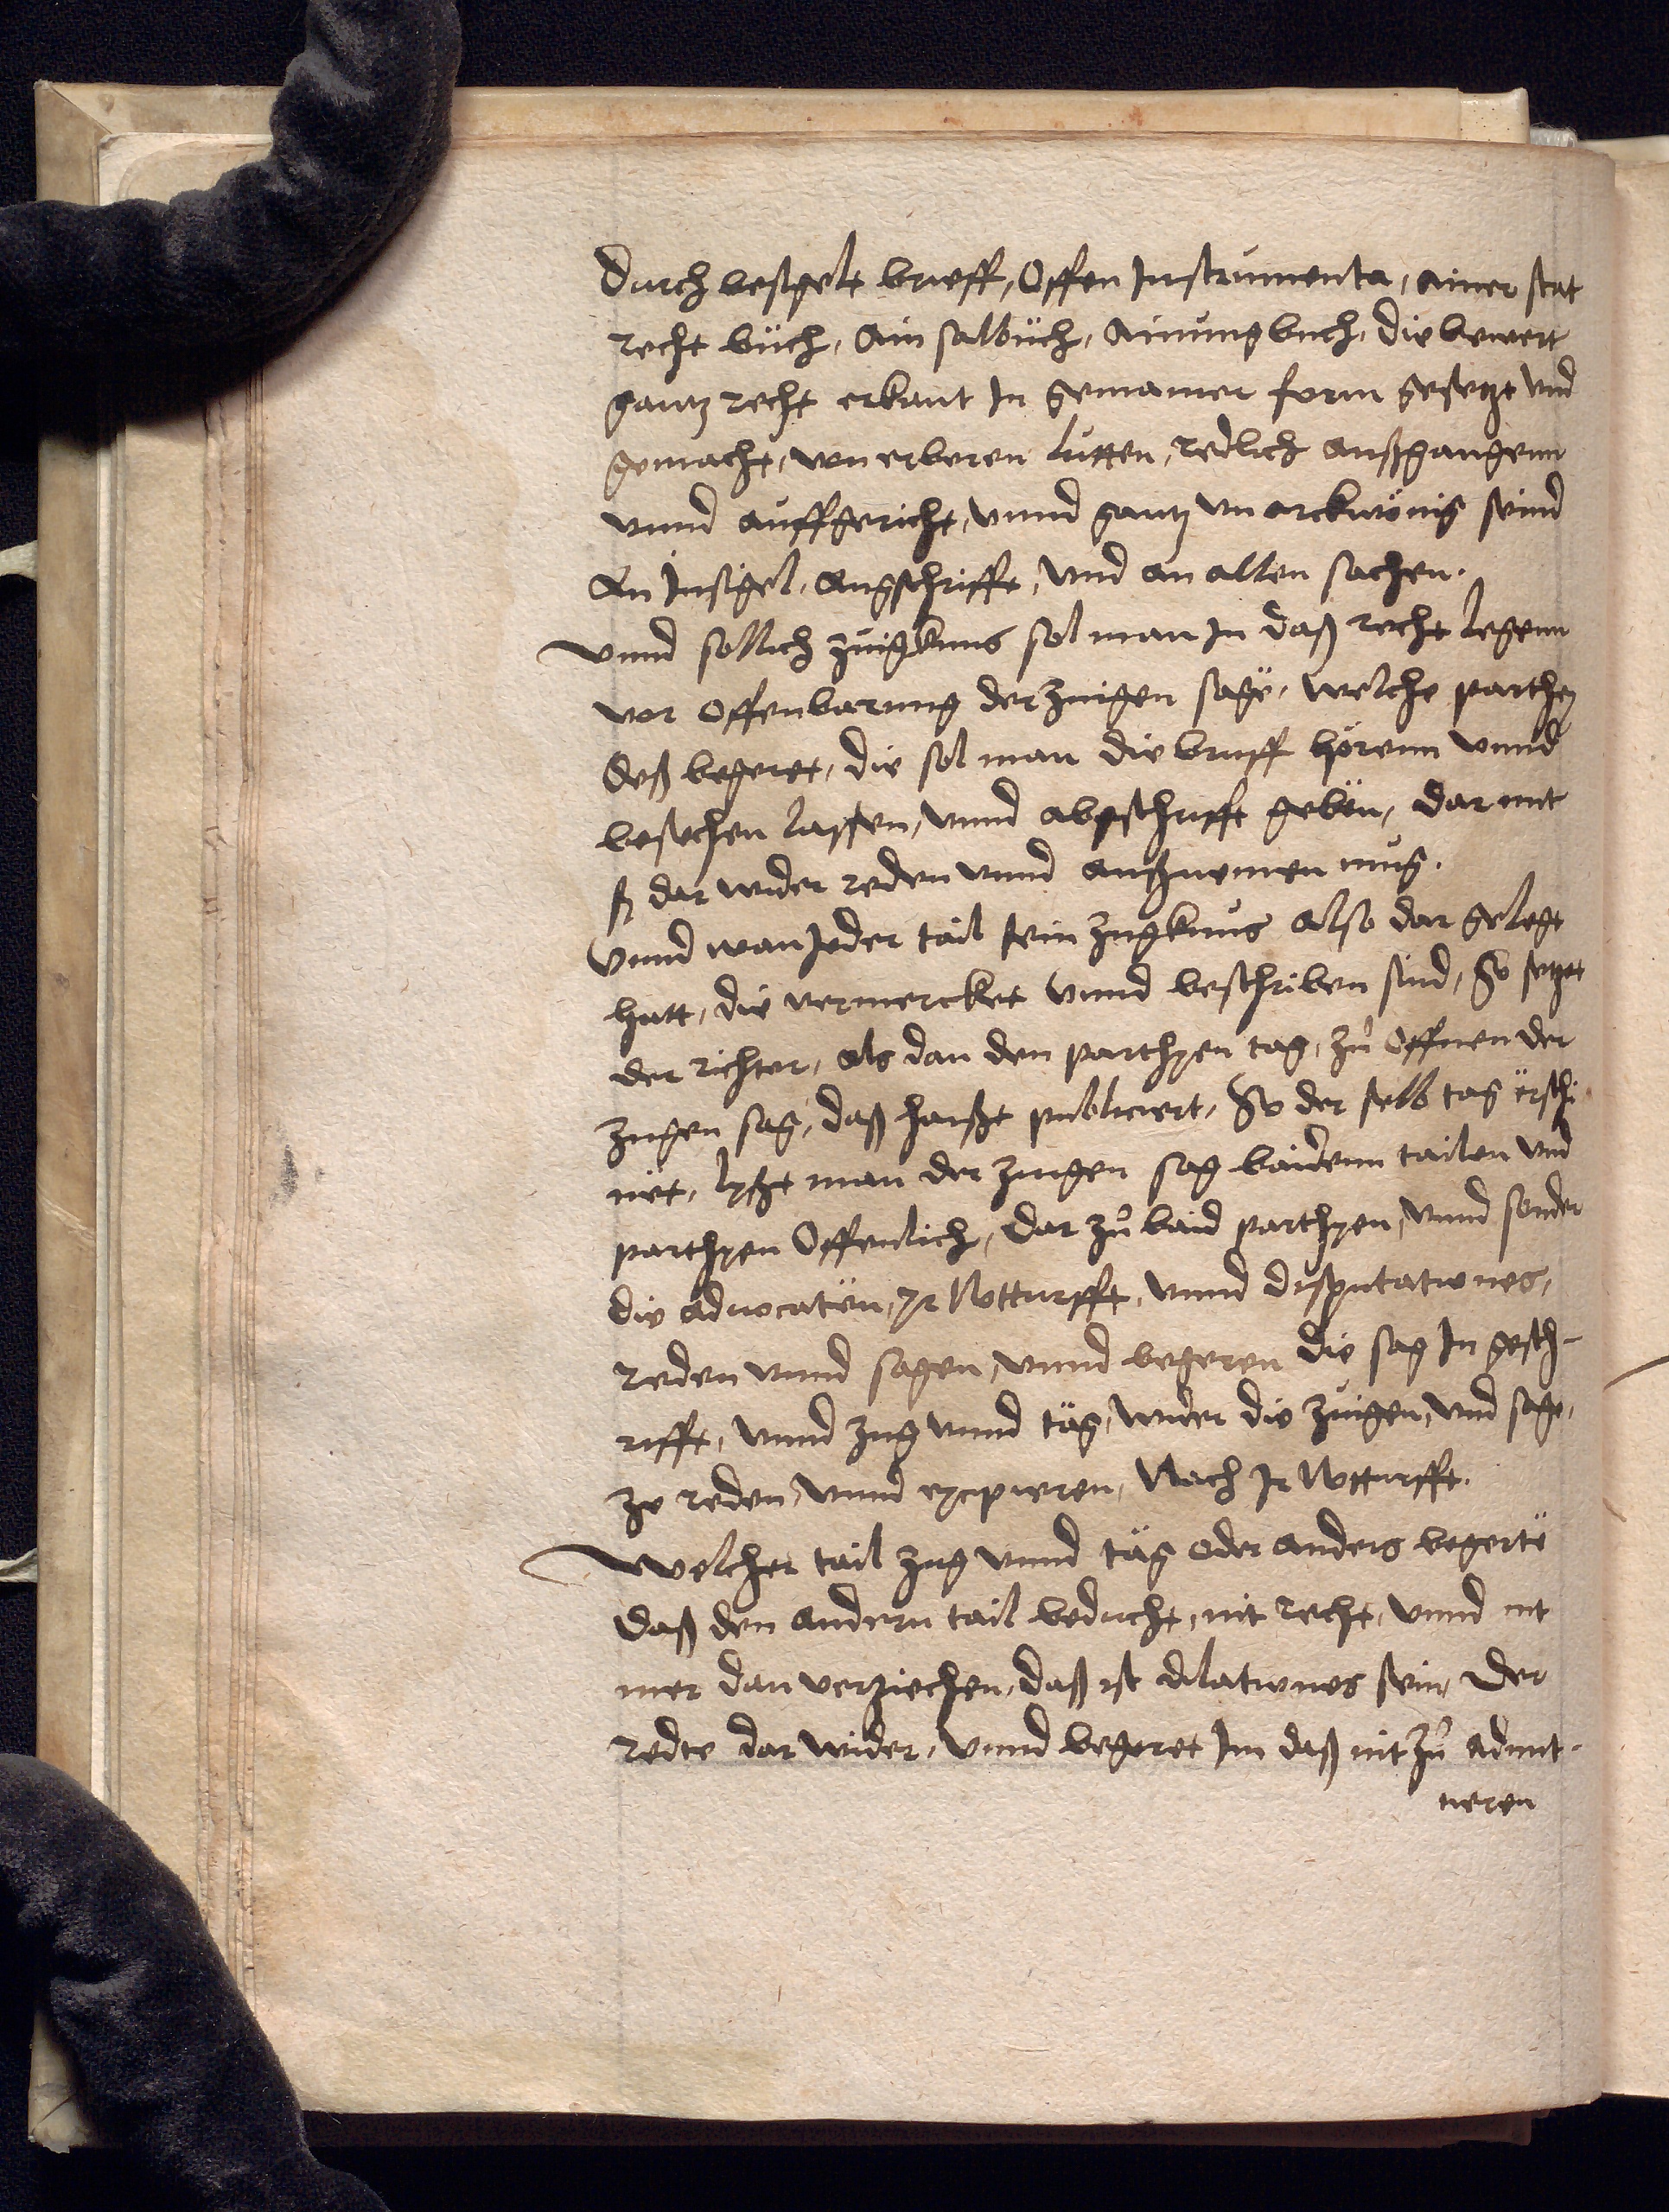 Durch besigelt brieff, Offen Instrumenta, ainer stat
recht bůch, Ain salbůch, Ainung buch, die bewert
gantz recht erkant In gemainer form gesetzt vnd
gemacht, von erberen lütten, redlich außgangenn
vnnd auffgericht, vnnd gantz vn arckwönig seind
An Insigel, Angschrifft, vnd an allen sachen.
Vnnd sollich zuigknus sol man In daß recht legenn
vor offenbarung der zuigen sage, welche parthey
deß begeret, die sol man die brieff hörenn vnnd
besechen lassen, vnnd abgschrifft geben, dar mit
sy dar wider reden vnnd außnemen mug.
Vnnd wan Jeder tail sein zugknus also dar gelegt
hatt, die vermercket vnnd beschriben sind, So setzet
der richter, als dan den parthyen tag, zů offnen der
zugen sag, daß haißt publiciert, So der selb tag erschi
net, lyßt man der zugen sag baidenn tailen vnd
parthyen Offenlich, Dar zů baid parthyen, vnnd sonder
die aduocaten, Ir Notturfft, vnnd disputationes,
reden vnnd sagen, vnnd begeren die sag In gesch-
rifft, vnnd zug vnnd täg, wider die zuigen, vnd sage,
ze reden, vnnd excipieren, Nach Ir Notturfft.
Welcher tail zug vnnd täg oder anders begerte
Daß den andern tail beducht, nit recht, vnnd nit
mer dan verziechen, daß ist dilationes sein, Der
redte dar wider, vnnd begeret Im daß nit zů admit-
tieren